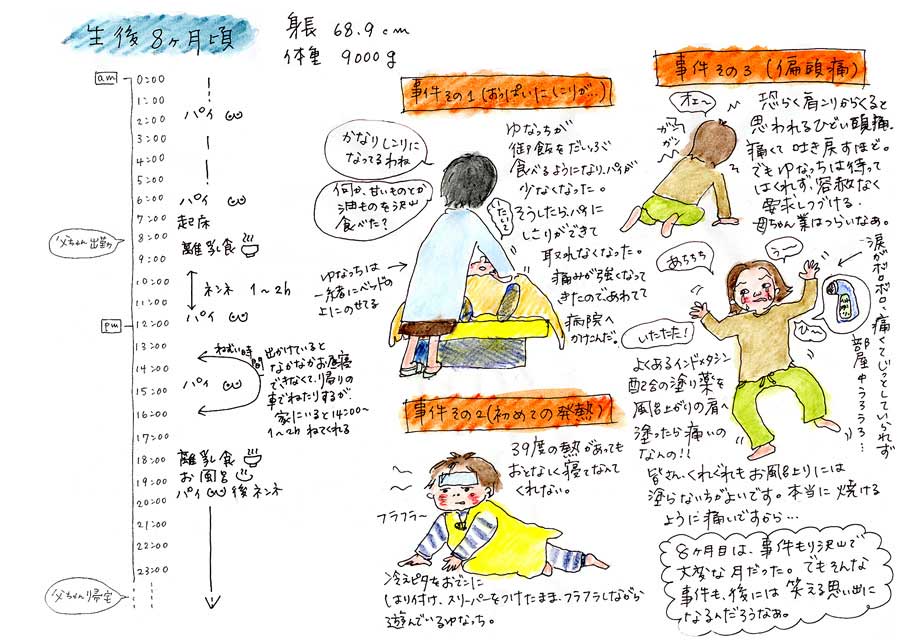 生後8ヶ月頃
身長 68.9cm
体重 9000g
am
0:00
1:00
2:00
パイ
3:00
4:00
5:00
6:00
パイ
7:00
起床
父ちゃん出勤
8:00
離乳食
9:00
10:00
ネンネ 1〜2h
11:00
パイ
pm
12:00
13:00
14:00
パイ
15:00
16:00
ねむい時間
出かけていると
なかなかお昼寝
できなくて、帰りの
車でねたりするが、
家にいると14:00〜
1〜2hねてくれる
17:00
18:00
離乳食
19:00
お風呂
20:00
パイ 後ネンネ
21:00
22:00
23:00
父ちゃん帰宅
事件その1(おっぱいにしこりが…)
かなりしこりに
なってるわね
何か、甘いものとか
油ものを沢山
食べた?
いたいて
ゆなっちは
一緒にベッドの
上にのせる
ゆなっちが
御飯をだいぶ
食べるようになり、パイが
少なくなった。
そうしたら、パイに
しこりができて
取れなくなった。
痛みが強くなって
きたのであわてて
病院へ
かけこんだ。
事件その2(初めての発熱)
39度の熱があっても
おとなしく寝てなんて
くれない。
フラフラ〜
冷えピタをおでこに
はり付け、スリーパーをつけたまま、フラフラしながら
遊んでいるゆなっち。
事件その3(偏頭痛)
オエ〜
ガンガン
恐らく肩こりからくると
思われるひどい頭痛。
痛くて吐き戻すほど。
でもゆなっちは待って
はくれず、容赦なく
要求しつづける。
母ちゃん業はつらいなぁ。
あちちち
うー
ひー
いたたた!
涙がボロボロ、痛くてじっとしていられず
部屋中うろうろ…
よくあるインドメタシン
配合の塗り薬を
風呂上がりの肩へ
塗ったら痛いの
なんの!!
皆さん、くれぐれもお風呂上りには
塗らない方がよいです。本当に焼ける
ように痛いですから…
8ヶ月目は、事件もり沢山で
大変な月だった。でもそんな
事件も、後には笑える思い出に
なるんだろうなぁ。